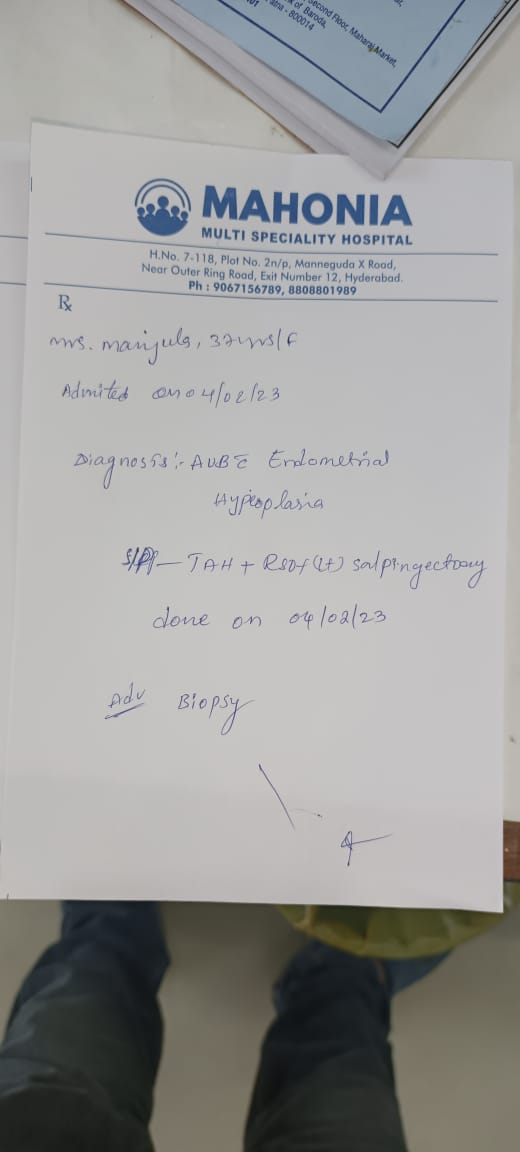 Second Floor, Maharaj Market,
of Baroda,
- 800014
MAHONIA
MULTI SPECIALITY HOSPITAL
H.No. 7-118, Plot No. 2n/p, Manneguda X Road,
Near Outer Ring Road, Exit Number 12, Hyderabad.
Ph : 9067156789, 8808801989
Rx
Mrs. Manjula, 37yrs/F
Admitted on 04/02/23
Diagnosis :- AUB c̄ Endometrial
Hyperplasia
TAH + RSO + (Lt) salpingectomy
done on 04/02/23
Adv Biopsy